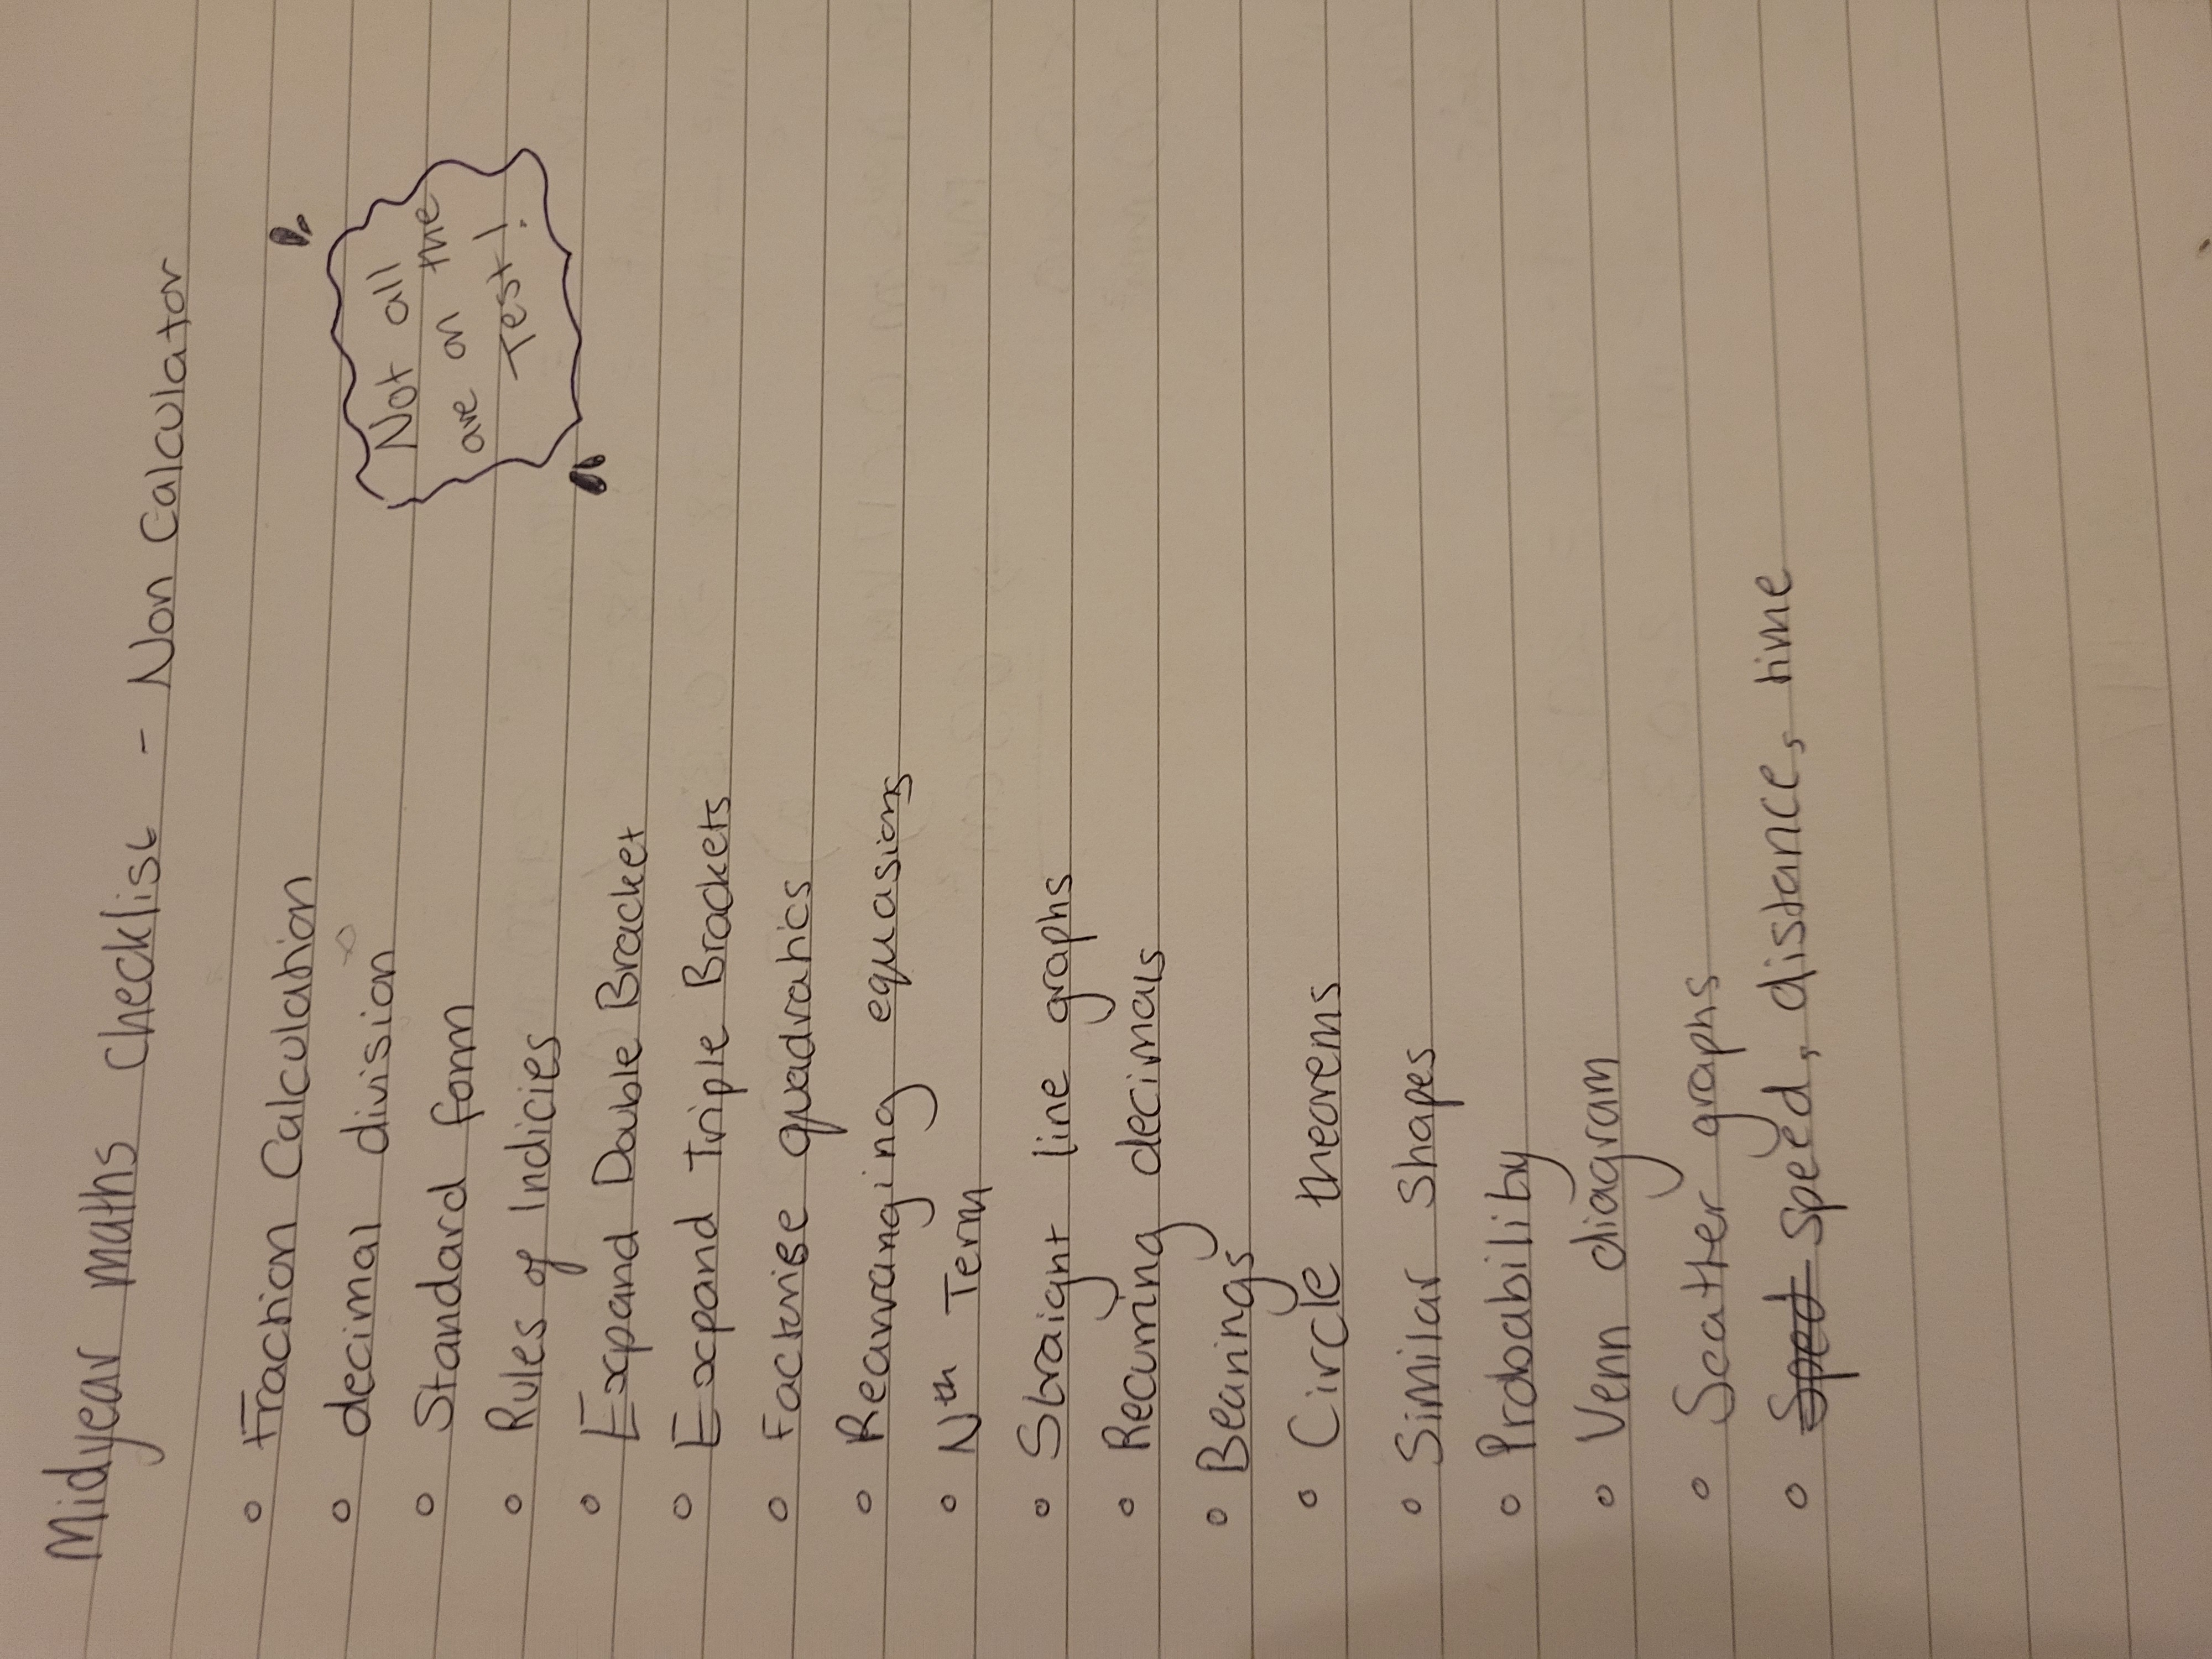 Midyear maths checklist - Non Calculator
Fraction Calculation
decimal division
Standard form
Rules of Indicies
Expand Double Bracket
Expand Triple Brackets
Factorise quadratics
Rearranging equasions
Nth Term
Straight line graphs
Recurring decimals
Bearings
Circle theorems
Similar shapes
Probability
Venn diagram
Scatter graphs
Sped speed, distance, time
Not all
are on the
Test!